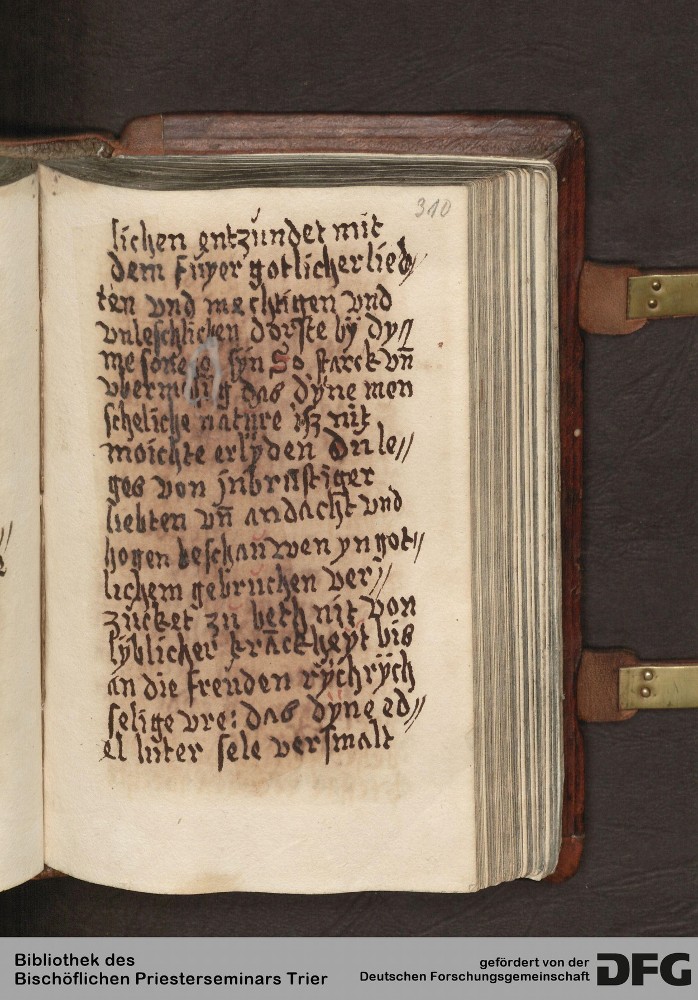 310
lichen entzundet mit
dem fuyer gotlicher lieb//
ten vnd mechtigen vnd
vnleschlichen dorste by dy//
me sone syn So starck vn̄
vbermesig das dyne men
scheliche nature isz nit
moichte erlyden Du le//
ges von jnbrustiger
liebten vn̄ andacht vnd
hogen beschauwen yn got//
lichem gebruchen ver//
zucket zu beth nit von
lyblicher kranckheyt bis
an die freuden rych rych
selige vre: das dyne ed//
el luter sele versmalt
Bibliothek des
Bischöflichen Priesterseminars Trier
gefördert von der
Deutschen Forschungsgemeinschaft
DFG